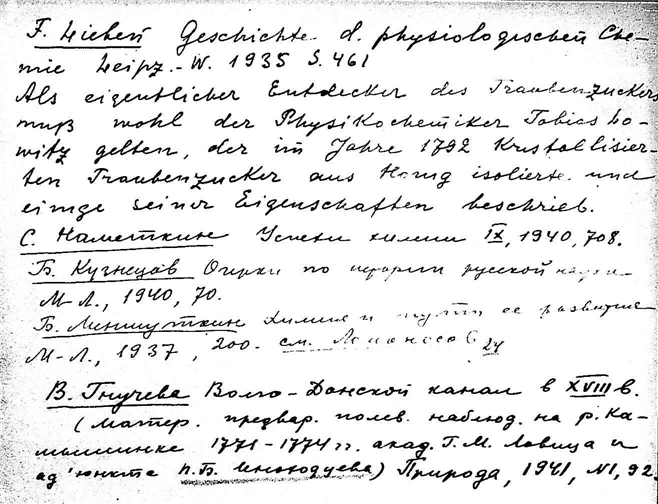 F. Lieben Geschichte d. physiologischen Che-
mie Leipz.-W. 1935 S. 461
Als eigentlicher Entdecker des Traubenzuckers
muß wohl der Physikochemiker Tobias Lo-
witz gelten, der im Jahre 1792 Kristallisier-
ten Traubenzucker aus Honig isolierte und
einige seiner Eigenschaften beschrieb.
С. Наметкин Успехи химии IX, 1940, 708.
Б. Кузнецов Очерки по истории русской науки
М-Л., 1940, 70.
Б. Меншуткин Химия и пути ее развития
М-Л., 1937, 200. см. Ломоносов 24
В. Гнучева Волго-Донской канал в XVIII в.
(матер. предвар. полев. наблюд. на р. Ка-
мышинке 1771-1774 гг. акад. Г. М. Ловица и
ад'юнкта П. Б. Иноходцева) Природа, 1941, №1, 92.